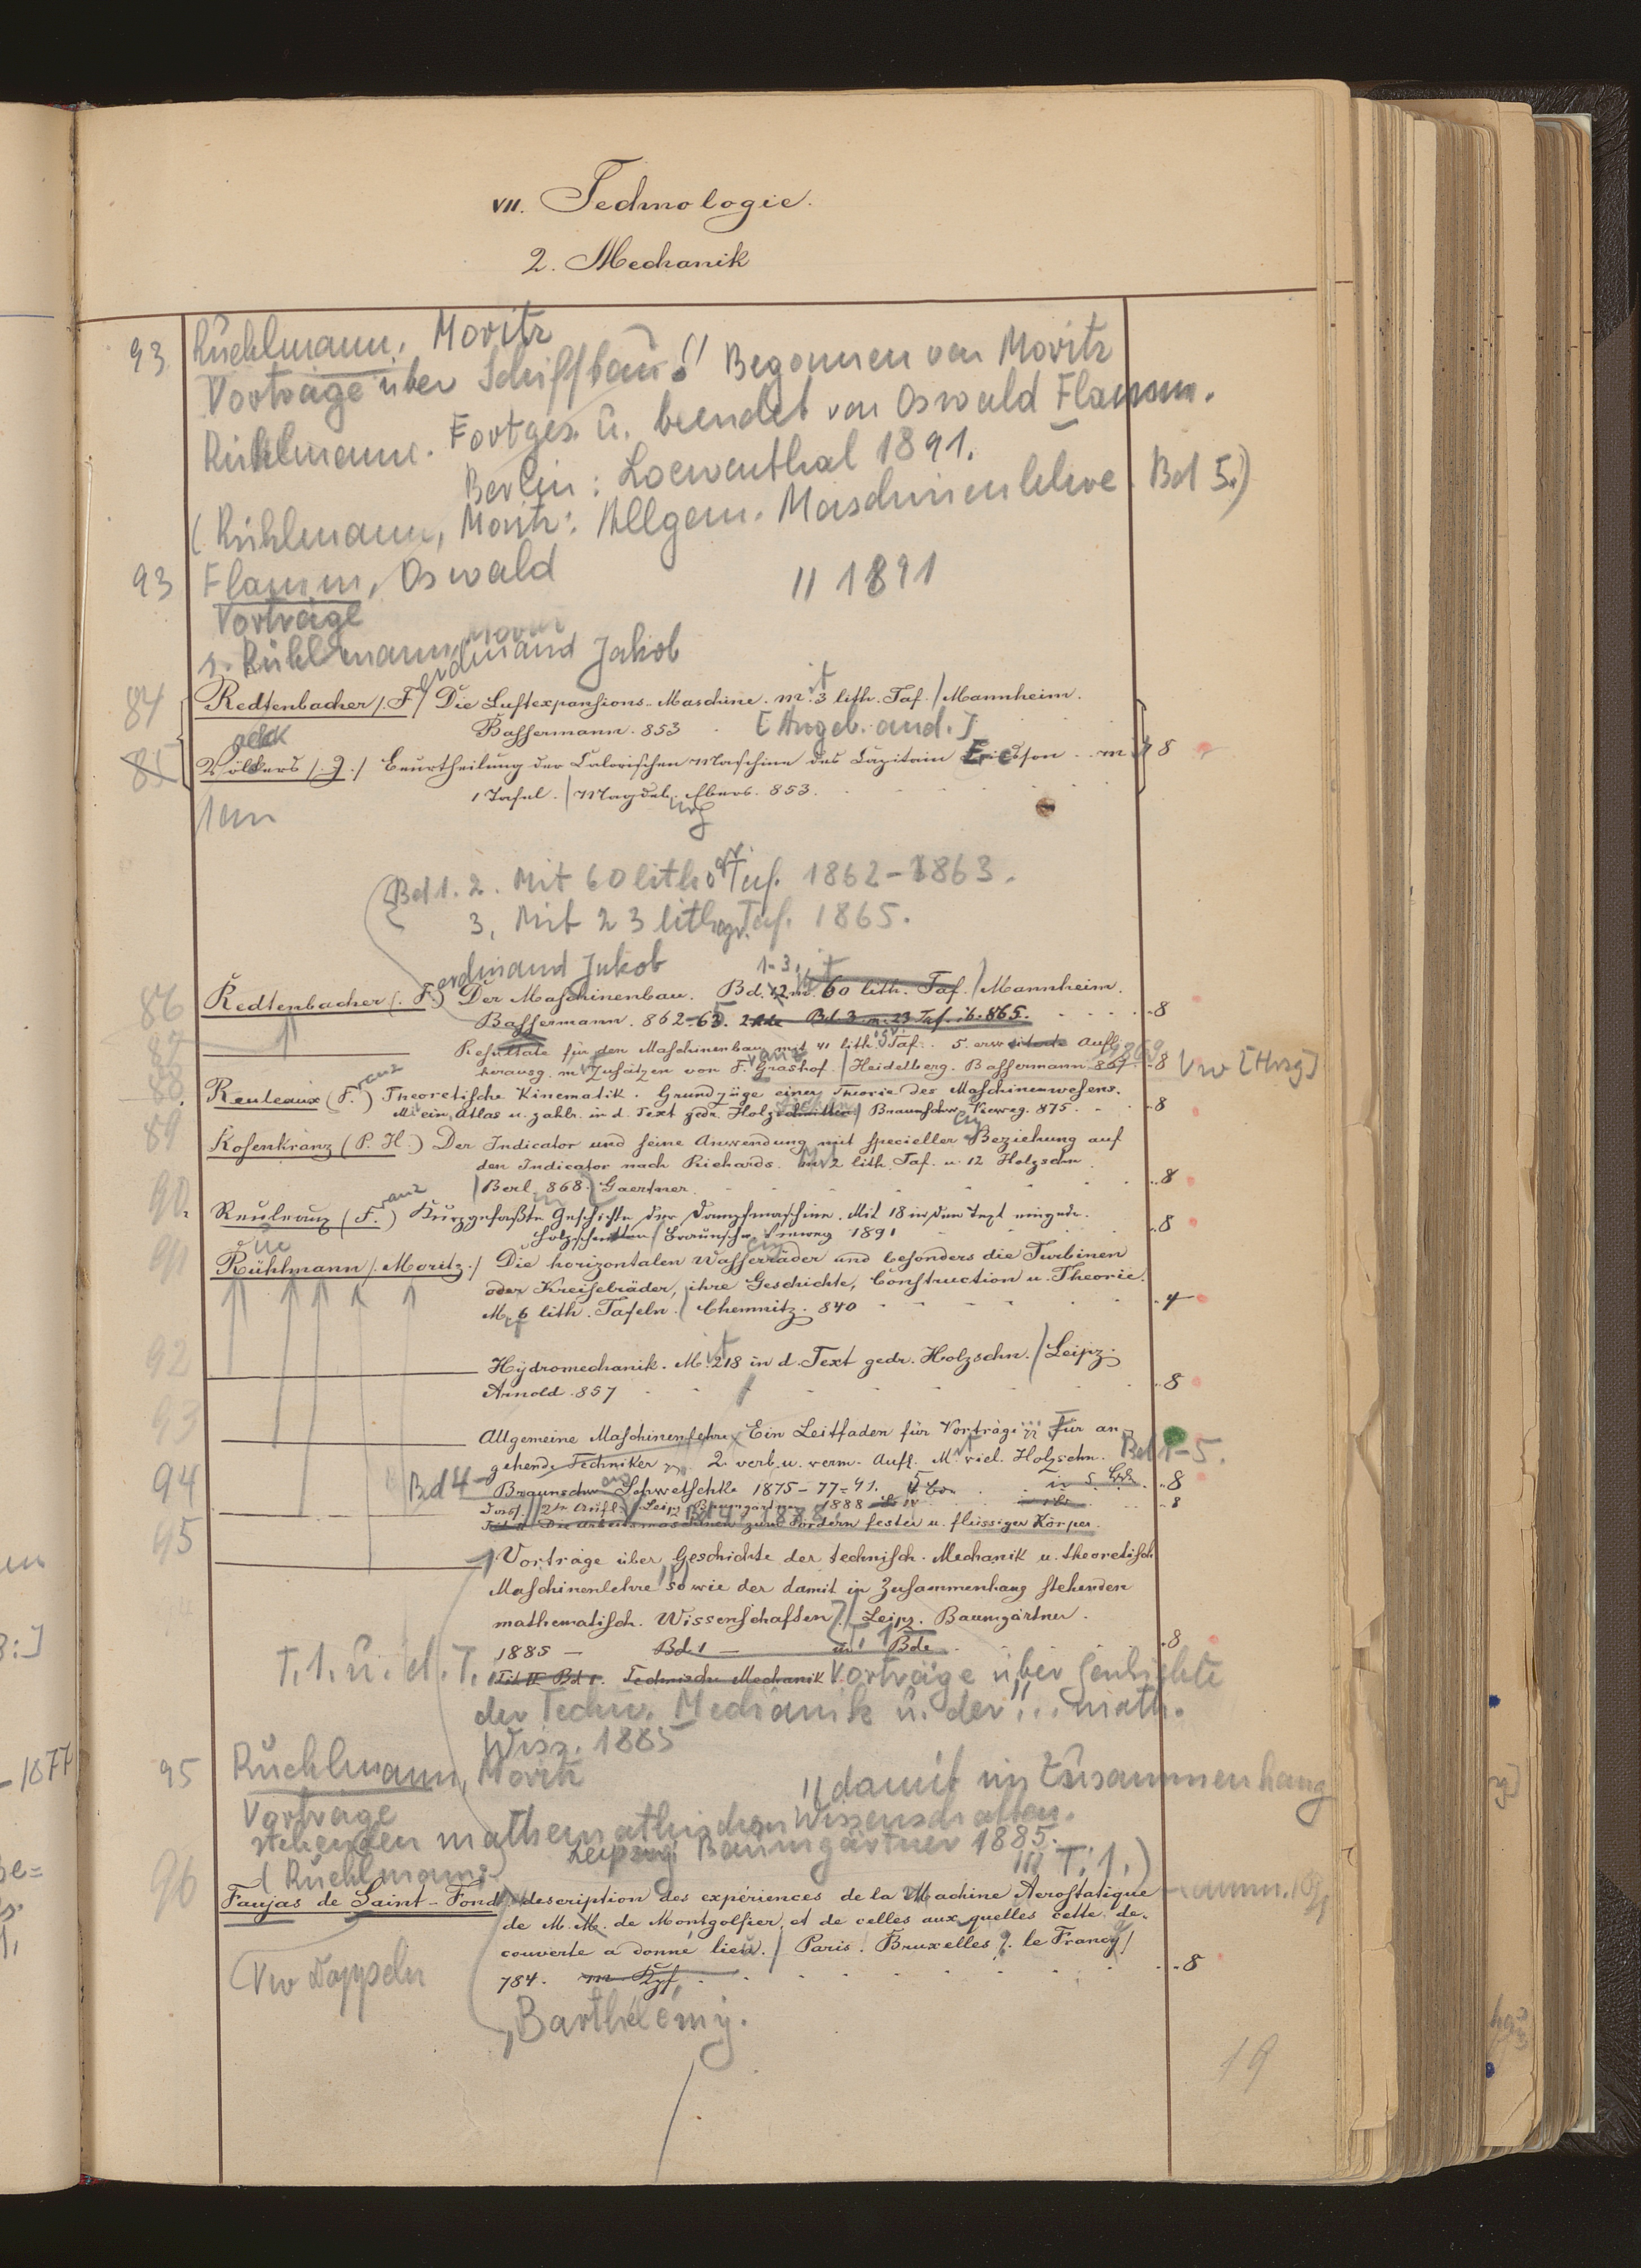 VII. Technologie.
2. Mechanik
93 Ruehlmann, Moritz
Vorträge über Schiffbau!! Begonnen von Moritz
Rühlmann. Fortges. u. beendet von Oswald Flamm.
Berlin: Loewenthal 1891.
(Rühlmann, Moritz: Allgem. Maschinenlehre Bd 5.)
93 Flamm, Oswald
Vorträge // 1891
s. Rühlmann, Moritz
erdinand Jakob
84 Redtenbacher (F.) Die Luftexpansions-Maschine. mit 3 lith. Taf. / Mannheim.
Bassermann. 853 [Angeb. and.]
85 Völckers (J.) Beurtheilung der Calorischen Maschine des Capitain Ericsson. m. 8
1 Tafel. / Magdeburg. Ebers. 853.
Bd 1. 2. Mit 60 lithogr. Taf. 1862-1863.
3. Mit 23 lithogr. Taf. 1865.
erdinand Jakob 1-3.
86 Redtenbacher (F.) Der Maschinenbau. Bd. 1.2 m. 60 lith. Taf. / Mannheim.
Bassermann. 862-65. 2 Bde Bd 3 m. 23 Taf. ib. 865. 8
87 Resultate für den Maschinenbau mit 41 lith. Taf. 5. erweiterte Aufl.
herausg. m. Zusätzen von F. Grashof. / Heidelberg. Bassermann 869. 8 Vw [Hrsg]
88 Reuleaux (Franz) Theoretische Kinematik. Grundzüge einer Theorie des Maschinenwesens.
M. ein. Atlas u. zahlr. in d. Text gedr. Holzschnitten / Braunschw. Vieweg. 875. 8
89 Rosenkranz (P. H.) Der Indicator und seine Anwendung mit specieller Beziehung auf
den Indicator nach Richards. Mit 2 lith. Taf. u. 12 Holzschn.
/ Berlin 868. / Gaertner. 8
90. Reuleaux (Franz) Kurzgefaßte Geschichte der Dampfmaschine. Mit 18 in den Text eingedr.
Holzschnitten / Braunschw. Vieweg 1891 8
91 Rühlmann (Moritz.) Die horizontalen Wasserräder und besonders die Turbinen
oder Kreiselräder, ihre Geschichte, Construction u. Theorie.
M. 6 lith. Tafeln. / Chemnitz. 840 4
92 Hydromechanik. Mit 218 in d. Text gedr. Holzschn. / Leipz.
Arnold. 857 8
93 Allgemeine Maschinenlehre. Ein Leitfaden für Vorträge ... Für an-
gehende Techniker 2. verb. u. verm. Aufl. Mit viel. Holzschn. Bd 1-5.
94 Bd 4 Braunschw. Schwetschke 1875-77-91. 5 Bde in 5 Bde 8
Dass. 2te Aufl. Leipz. Baumgärtner 1888 Bd IV 8
Die Arbeitsmaschinen zum Fördern fester u. flüssiger Körper.
95 Vorträge über Geschichte der technisch. Mechanik u. theoretisch
Maschinenlehre sowie der damit in Zusammenhang stehenden
mathematisch. Wissenschaften. / Leipz. Baumgärtner.
1885 — Bd. 1 — Bde 8
T. 1. u. d. T. Tit II Bd 1. Technische Mechanik Vorträge über Geschichte
der Techn. Mechanik u. der!!... math.
Wiss. 1885
95 Ruehlmann, Moritz
Vorträge // damit im Zusammenhang
stehenden mathemathischen Wissenschaften.
Leipzig: Baumgärtner 1885.
(Ruehlmann: ... T. 1.)
96 Faujas de Saint-Fond, description des expériences de la Machine Aerostatique
de M. M. de Montgolfier, et de celles aux quelles cette dé-
couverte a donné lieu. / Paris. Bruxelles J. le Francq /
784. m. Kpf. 8
(Vw Doppeln
, Barthélémy.
19